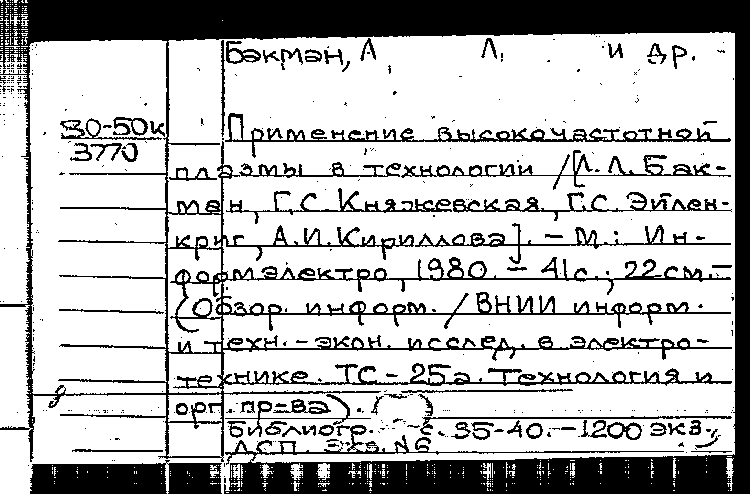 Бакман, Л. Л. и др.
80-50к
3770
Применение высокочастотной
плазмы в технологии /[Л.Л.Бак-
ман, Г.С. Княжевская, Г.С. Эйлен-
криг, А.И.Кириллова]. – М.: Ин-
формэлектро, 1980. – 41с.; 22см.–
(Обзор. информ. / ВНИИ информ.
и техн.-экон. исслед. в электро-
технике. ТС-25а. Технология и
орг. пр-ва).
Библиогр. с. 35-40. – 1200 экз.
ДСП. Экз. N6.